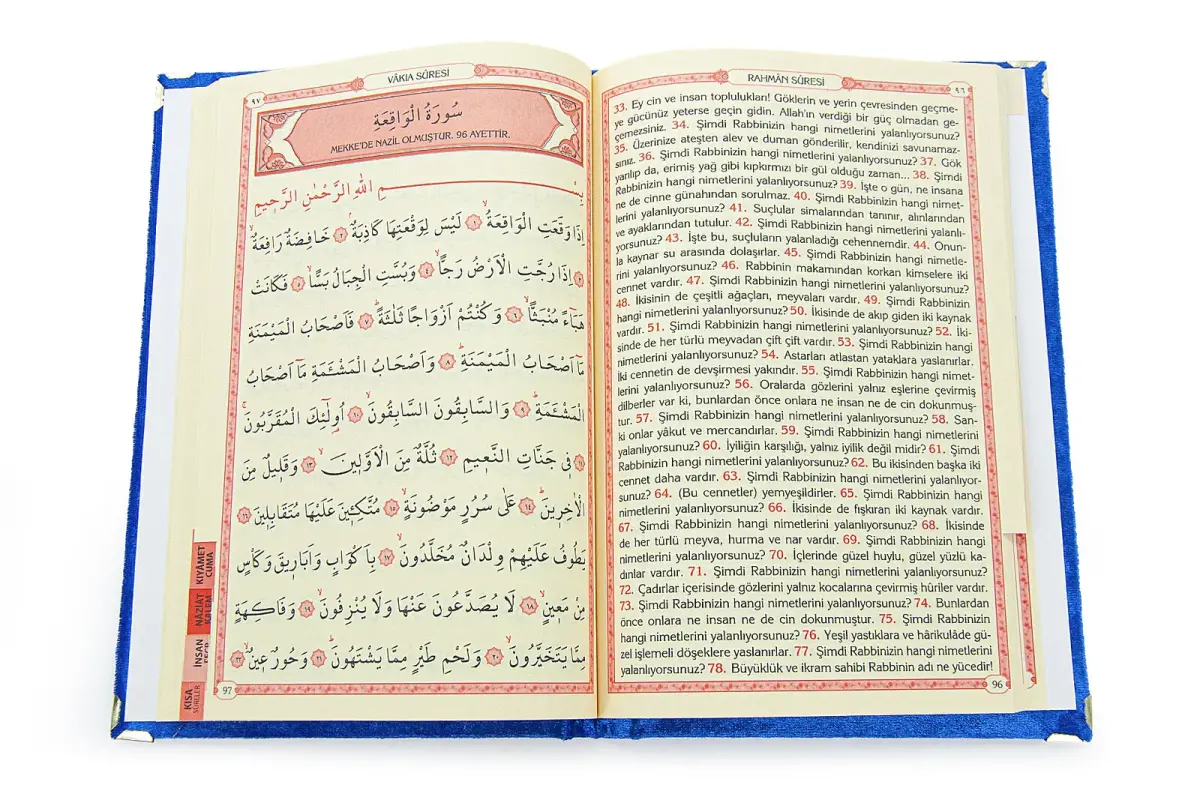 RAHMÂN SÛRESİ
٩٦
33. Ey cin ve insan toplulukları! Göklerin ve yerin çevresinden geçme-
ye gücünüz yeterse geçin gidin. Allah'ın verdiği bir güç olmadan ge-
çemezsiniz. 34. Şimdi Rabbinizin hangi nimetlerini yalanlıyorsunuz?
35. Üzerinize ateşten alev ve duman gönderilir, kendinizi savunamaz-
sınız. 36. Şimdi Rabbinizin hangi nimetlerini yalanlıyorsunuz? 37. Gök
yarılıp da, erimiş yağ gibi kıpkırmızı bir gül olduğu zaman... 38. Şimdi
Rabbinizin hangi nimetlerini yalanlıyorsunuz? 39. İşte o gün, ne insana
ne de cinne günahından sorulmaz. 40. Şimdi Rabbinizin hangi nimet-
lerini yalanlıyorsunuz? 41. Suçlular simalarından tanınır, alınlarından
ve ayaklarından tutulur. 42. Şimdi Rabbinizin hangi nimetlerini yalanlı-
yorsunuz? 43. İşte bu, suçluların yalanladığı cehennemdir. 44. Onun-
la kaynar su arasında dolaşırlar. 45. Şimdi Rabbinizin hangi nimetle-
rini yalanlıyorsunuz? 46. Rabbinin makamından korkan kimselere iki
cennet vardır. 47. Şimdi Rabbinizin hangi nimetlerini yalanlıyorsunuz?
48. İkisinin de çeşitli ağaçları, meyvaları vardır. 49. Şimdi Rabbinizin
hangi nimetlerini yalanlıyorsunuz? 50. İkisinde de akıp giden iki kaynak
vardır. 51. Şimdi Rabbinizin hangi nimetlerini yalanlıyorsunuz? 52. İki-
sinde de her türlü meyvadan çift çift vardır. 53. Şimdi Rabbinizin hangi
nimetlerini yalanlıyorsunuz? 54. Astarları atlastan yataklara yaslanırlar.
İki cennetin de devşirmesi yakındır. 55. Şimdi Rabbinizin hangi nimet-
lerini yalanlıyorsunuz? 56. Oralarda gözlerini yalnız eşlerine çevirmiş
dilberler var ki, bunlardan önce onlara ne insan ne de cin dokunmuş-
tur. 57. Şimdi Rabbinizin hangi nimetlerini yalanlıyorsunuz? 58. San-
ki onlar yâkut ve mercandırlar. 59. Şimdi Rabbinizin hangi nimetlerini
yalanlıyorsunuz? 60. İyiliğin karşılığı, yalnız iyilik değil midir? 61. Şimdi
Rabbinizin hangi nimetlerini yalanlıyorsunuz? 62. Bu ikisinden başka iki
cennet daha vardır. 63. Şimdi Rabbinizin hangi nimetlerini yalanlıyor-
sunuz? 64. (Bu cennetler) yemyeşildirler. 65. Şimdi Rabbinizin hangi
nimetlerini yalanlıyorsunuz? 66. İkisinde de fışkıran iki kaynak vardır.
67. Şimdi Rabbinizin hangi nimetlerini yalanlıyorsunuz? 68. İkisinde
de her türlü meyva, hurma ve nar vardır. 69. Şimdi Rabbinizin hangi
nimetlerini yalanlıyorsunuz? 70. İçlerinde güzel huylu, güzel yüzlü ka-
dınlar vardır. 71. Şimdi Rabbinizin hangi nimetlerini yalanlıyorsunuz?
72. Çadırlar içerisinde gözlerini yalnız kocalarına çevirmiş hûriler vardır.
73. Şimdi Rabbinizin hangi nimetlerini yalanlıyorsunuz? 74. Bunlardan
önce onlara ne insan ne de cin dokunmuştur. 75. Şimdi Rabbinizin
hangi nimetlerini yalanlıyorsunuz? 76. Yeşil yastıklara ve hârikulâde gü-
zel işlemeli döşeklere yaslanırlar. 77. Şimdi Rabbinizin hangi nimetlerini
yalanlıyorsunuz? 78. Büyüklük ve ikram sahibi Rabbinin adı ne yücedir!
96
VÂKIA SÛRESİ
٩٧
سُورَةُ الْوَاقِعَةِ
MEKKE'DE NAZİL OLMUŞTUR. 96 AYETTİR.
بِسْمِ اللهِ الرَّحْمٰنِ الرَّحِيمِ
اِذَا وَقَعَتِ الْوَاقِعَةُۙ ١ لَيْسَ لِوَقْعَتِهَا كَاذِبَةٌۢ ٢ خَافِضَةٌ رَافِعَةٌۙ
٣ اِذَا رُجَّتِ الْاَرْضُ رَجًّاۙ ٤ وَبُسَّتِ الْجِبَالُ بَسًّاۙ ٥ فَكَانَتْ
هَبَٓاءً مُنْبَثًّاۙ ٦ وَكُنْتُمْ اَزْوَاجًا ثَلٰثَةًۜ ٧ فَاَصْحَابُ الْمَيْمَنَةِ
مَٓا اَصْحَابُ الْمَيْمَنَةِۜ ٨ وَاَصْحَابُ الْمَشْـَٔمَةِ مَٓا اَصْحَابُ
الْمَشْـَٔمَةِۜ ٩ وَالسَّابِقُونَ السَّابِقُونَۙ ١٠ اُو۬لٰٓئِكَ الْمُقَرَّبُونَۚ
١١ فِي جَنَّاتِ النَّعِيمِ ١٢ ثُلَّةٌ مِنَ الْاَوَّلِينَۙ ١٣ وَقَلِيلٌ مِنَ
الْاٰخِرِينَۜ ١٤ عَلٰى سُرُرٍ مَوْضُونَةٍۙ ١٥ مُتَّكِـِٔينَ عَلَيْهَا مُتَقَابِلِينَ ١٦
يَطُوفُ عَلَيْهِمْ وِلْدَانٌ مُخَلَّدُونَۙ ١٧ بِاَكْوَابٍ وَاَبَارِيقَ وَكَأْسٍ
مِنْ مَعِينٍۙ ١٨ لَا يُصَدَّعُونَ عَنْهَا وَلَا يُنْزِفُونَۙ ١٩ وَفَاكِهَةٍ
مِمَّا يَتَخَيَّرُونَۙ ٢٠ وَلَحْمِ طَيْرٍ مِمَّا يَشْتَهُونَۜ ٢١ وَحُورٌ عِينٌۙ ٢٢
97
KIYÂMET
CUMA
NÂZİÂT
KALEM
İNSAN
KISA
SÛRELER